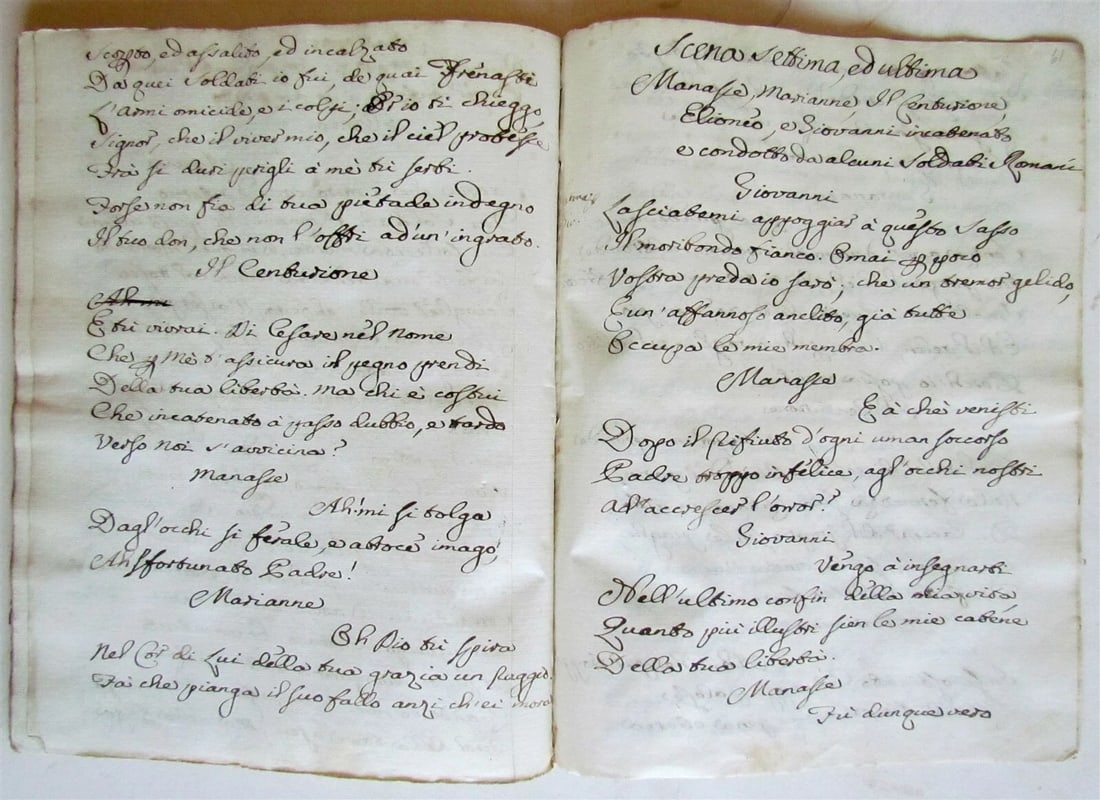 Scorto, ed assalito, ed incalzato
Da quei soldati io fui, de quai frenasti
L'armi omicide, e i colpi; Or io ti chieggo
Signor, che il viver mio, che il ciel protesse
Frà si duri perigli à mè tu serbi.
Forse non fia di tua pietade indegno
Il tuo don, che non l'offri ad un'ingrato.
Il Centurione
Ah mi
E tu vivrai. Di Cesare nel nome
Che p mè t'assicura il pegno prendi
Della tua libertà. Ma chi è costui
Che incatenato à passo dubbio, e tardo
Verso noi s'avvicina?
Manasse
Ah! mi si tolga
Dagl'occhi si ferale, e atroce imago,
Ah sfortunato Padre!
Marianne
Oh Dio tu spira
Nel Cor di Lui della tua grazia un raggio.
Fà che pianga il suo fallo anzi ch'ei mora
61
Scena settima, ed ultima
Manasse, Marianne Il Centurione,
Elioneo, e Giovanni incatenato
e condotto da alcuni soldati Romani
Giovanni
Lasciatemi appoggiar à questo sasso
Il moribondo fianco. Omai p poco
Vostra preda io sarò; che un tremor gelido,
E un'affannoso anelito, già tutte
Occupa le mie membra.
Manasse
E à chè venisti
Dopo il rifiuto d'ogni uman soccorso
Padre troppo infelice, agl'occhi nostri
ad accrescer l'orror?
Giovanni
Vengo à insegnarti
Nell'ultimo confin della mia vita
Quanto più illustri sien le mie catene
Della tua libertà.
Manasse
Fù dunque vero